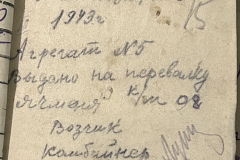 1943г
15
Агрегат №5
Выдано на перевалку
Ячменя к/т 98
Возчик
Комбайнер